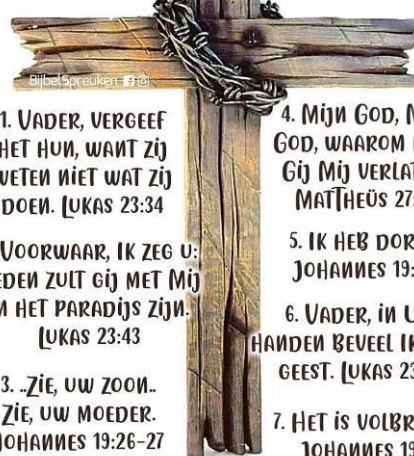 BijbelSpreuken
1. VADER, VERGEEF
HET HUN, WANT ZIJ
WETEN NIET WAT ZIJ
DOEN. LUKAS 23:34
VOORWAAR, IK ZEG U:
ZULT GIJ MET MIJ
HET PARADIJS ZIJN.
LUKAS 23:43
3. ..ZIE, UW ZOON..
ZIE, UW MOEDER.
JOHANNES 19:26-27
4. MIJN GOD,
GOD, WAAROM
GIJ MIJ
MATTHEÜS 27:
5. IK HEB
JOHANNES 19:
6. VADER, IN
HANDEN BEVEEL IK
GEEST. LUKAS
7. HET IS
JOHANNES